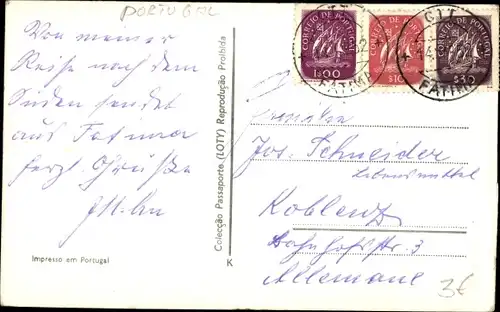 PORTUGAL
Von meiner
Reise nach dem
Süden sendet
aus Fatima
herzl. Grüße
Impresso em Portugal
Colecção Passaporte (LOTY) Reprodução Proibida
K
CORREIO DE PORTUGAL
1$00
CORREIO DE PORTUGAL
$10
CORREIO DE PORTUGAL
$30
FATIMA
CTT
FATIMA
Jos. Schneider
Lebensmittel
Koblenz
Bahnhofstr. 3
Allemane
3€